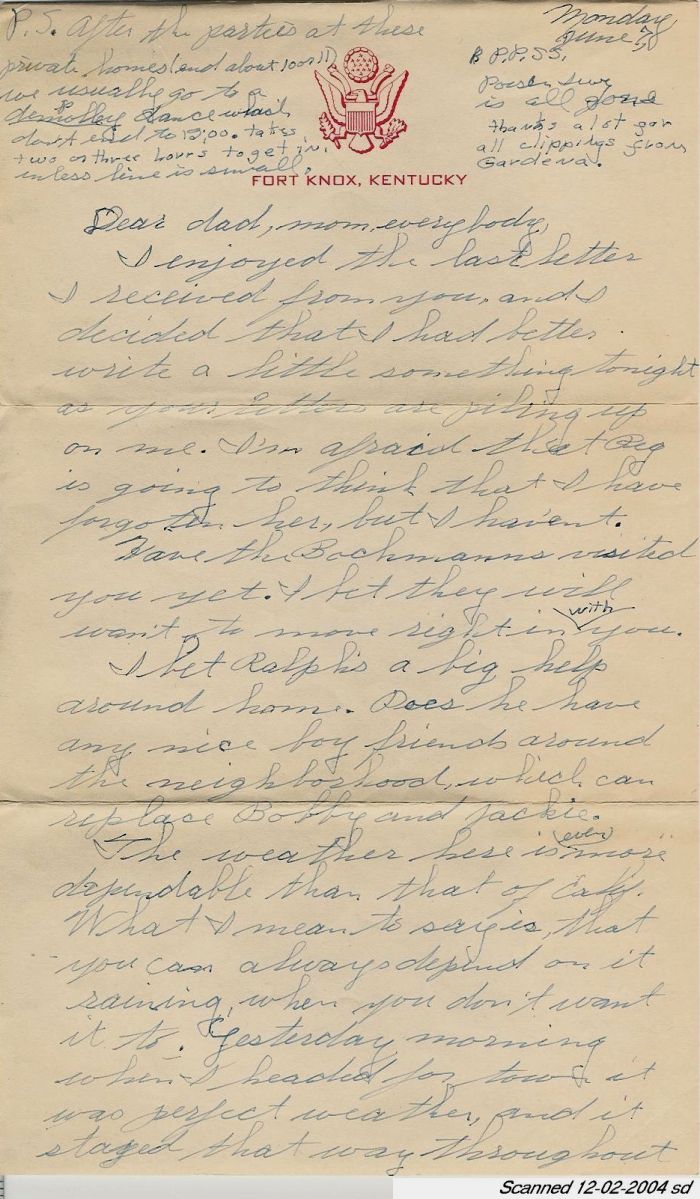 P.S. After the parties at these
private homes (end about 10 or 11)
we usually go to a
demolley dance which
don't end to 12:00. takes
two or three hours to get in,
unless line is small.
Monday,
June
P.P.SS.
Poison Ivy
is all gone
thanks a lot for
all clippings from
Gardena.
FORT KNOX, KENTUCKY
Dear dad, mom, everybody,
I enjoyed the last letter
I received from you, and I
decided that I had better
write a little something tonight
as your letters are piling up
on me. I'm afraid that Peg
is going to think that I have
forgotten her, but I haven't.
Have the Bachmanns visited
you yet. I bet they will
want to move right in with you.
I bet Ralph's a big help
around home. Does he have
any nice boy friends around
the neighborhood, which can
replace Bobby and Jackie.
The weather here is even more
dependable than that of Calif.
What I mean to say is, that
you can always depend on it
raining, when you don't want
it to. Yesterday morning
when I headed for town it
was perfect weather, and it
stayed that way throughout
Scanned 12-02-2004 sd